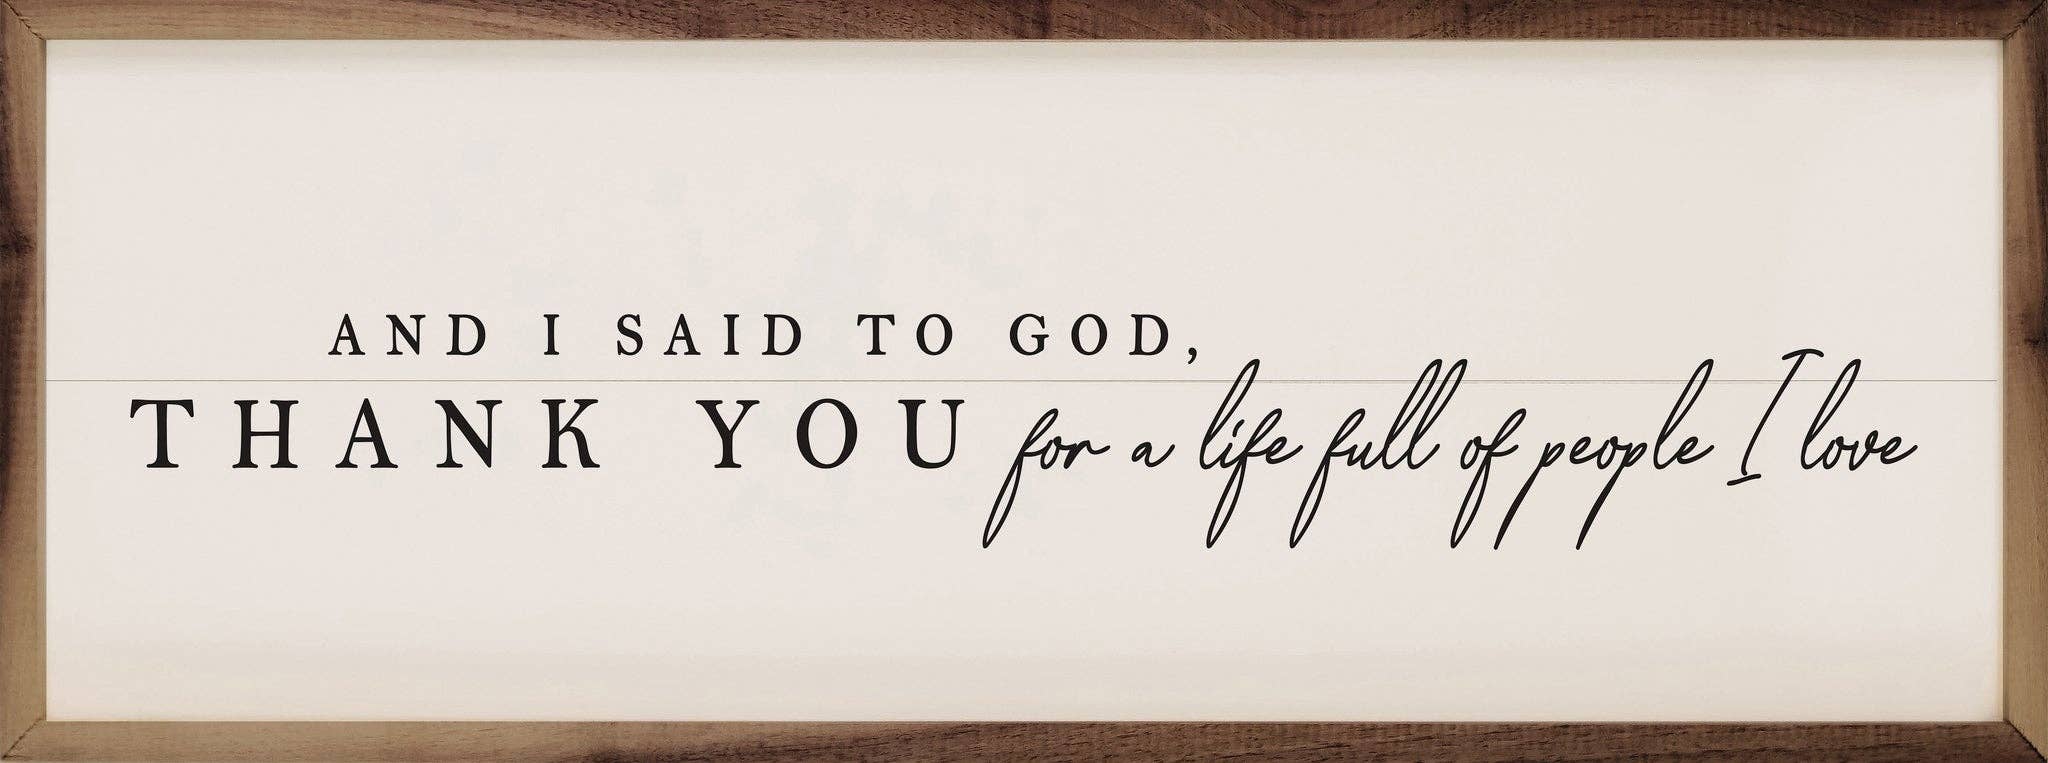 AND I SAID TO GOD,
THANK YOU for a life full of people I love